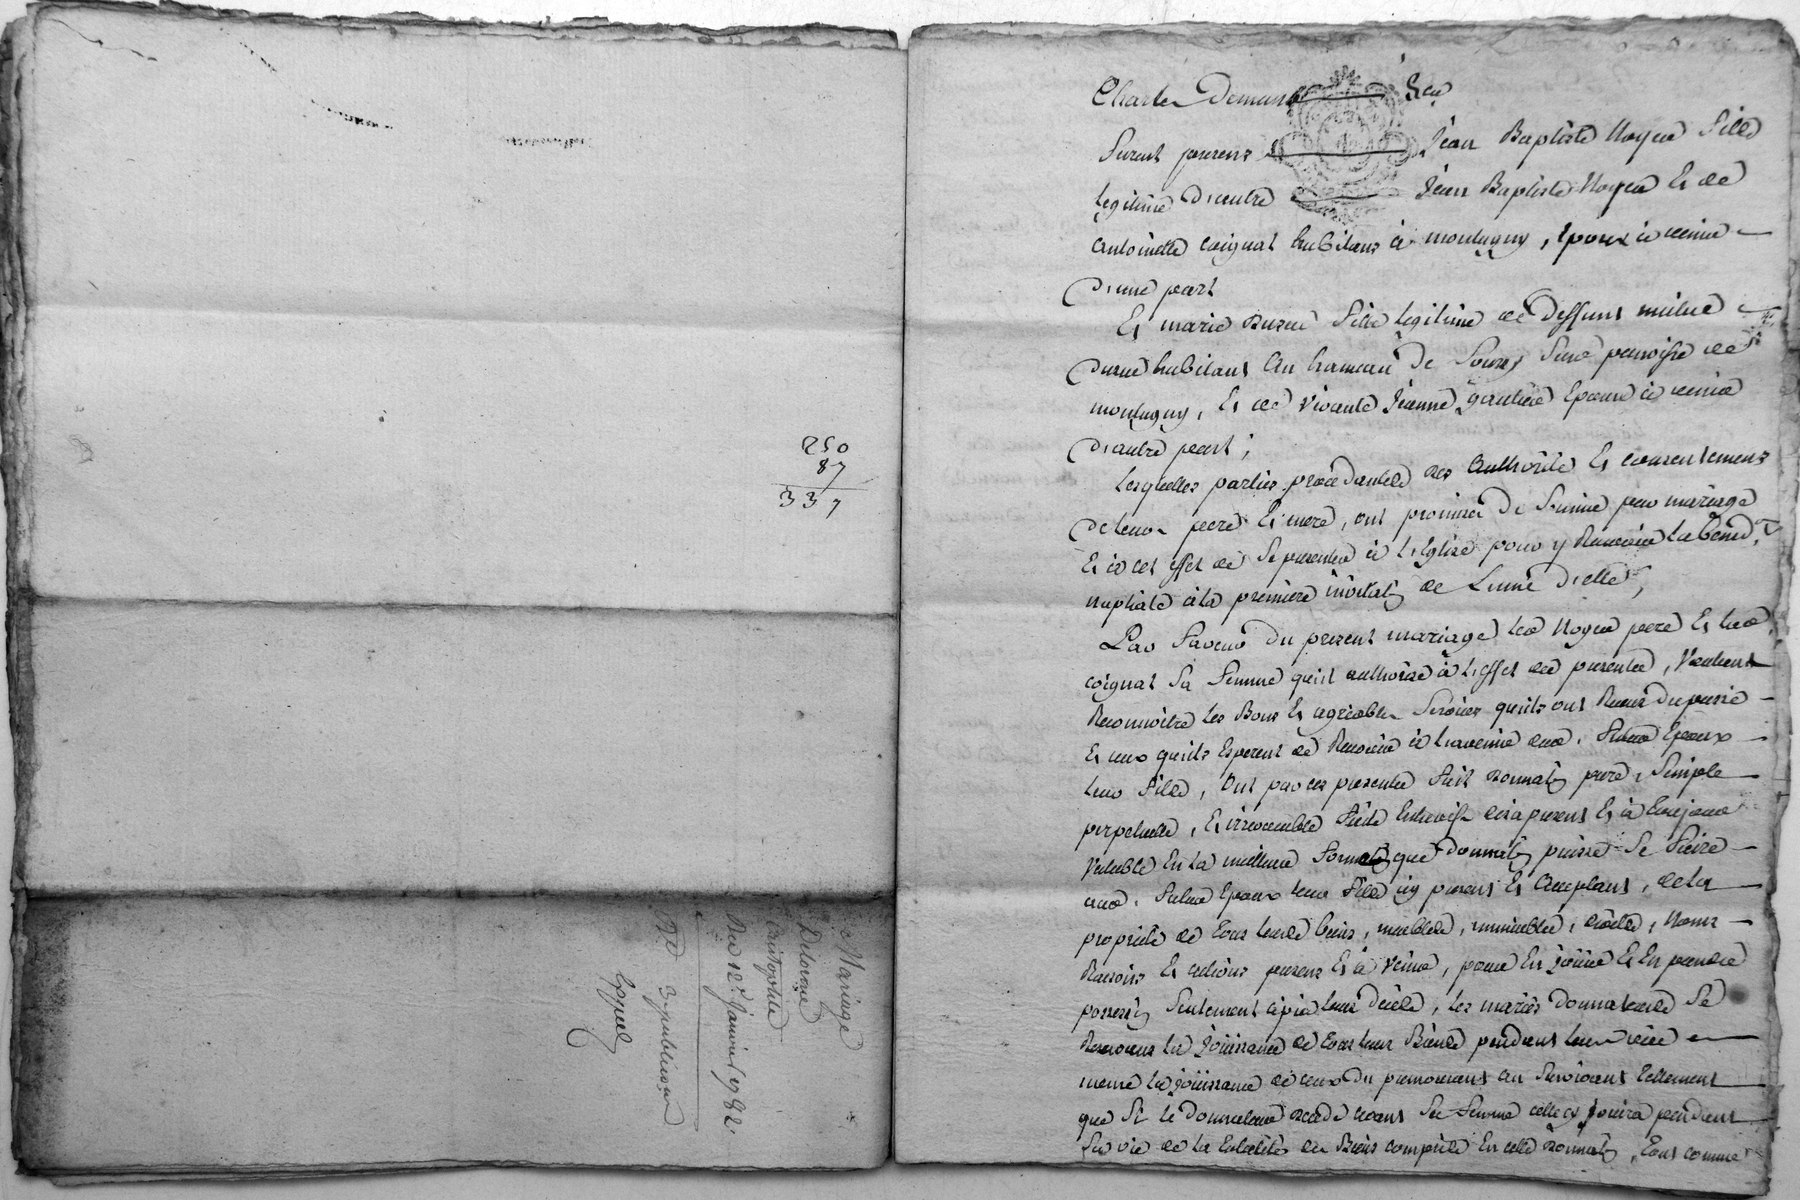 250
87
337
Mariage
Delorme
Christophle
Du 12e janvier 1782.
Charles Demans
furent presens Jean Baptiste Noyer fils
legitime d'autre Jean Baptiste Noyer et de
antoinette coignat habitans à montagny, Epoux à venir
D'une part
Et marie Durué fille legitime de Deffunt
Durué habitant au hameau de paroisse de
montagny, et de vivante Jeanne gautier Epouse à venir
D'autre part;
lesquelles parties procedantes des authorité et consentement
de leurs pere et mere, ont promis de s'unir par mariage
et à cet effet de se presenter à l'Eglise pour y Recevoir la Bened.on
nuptiale à la premiere invitation de L'une d'elles,
En faveur du present mariage led Noyer pere et lad.
coignat sa femme qu'il authorise à l'effet des presentes, Veulent
Reconnoitre les Bons et agreables services qu'ils ont Recus du passé
et ceux qu'ils Esperent de Recevoir à l'avenir dud. futur Epoux
leur fils, ont par ces presentes fait donnation pure, simple
perpetuelle, et irrevocable faite Entrevifs dès à present et à toujours
Valable En la meilleure forme que donnation puisse se faire
aud. futur Epoux leur fils icy present et acceptant, de la
proprieté de tous leurs biens, meubles, immeubles, droits, Noms
Raisons et actions presens et à venir, pour En jöüir et En prendre
possession seulement après leur décès, les mariés donnateurs se
Reservant la jöüissance de tous leurs Biens pendant leur vie
meme la jöüissance de ceux du premourant au survivant tellement
que si le donnateur decede avant sa femme celle cy jouira pendant
sa vie de la totalité des Biens compris En cette donnation, tout comme